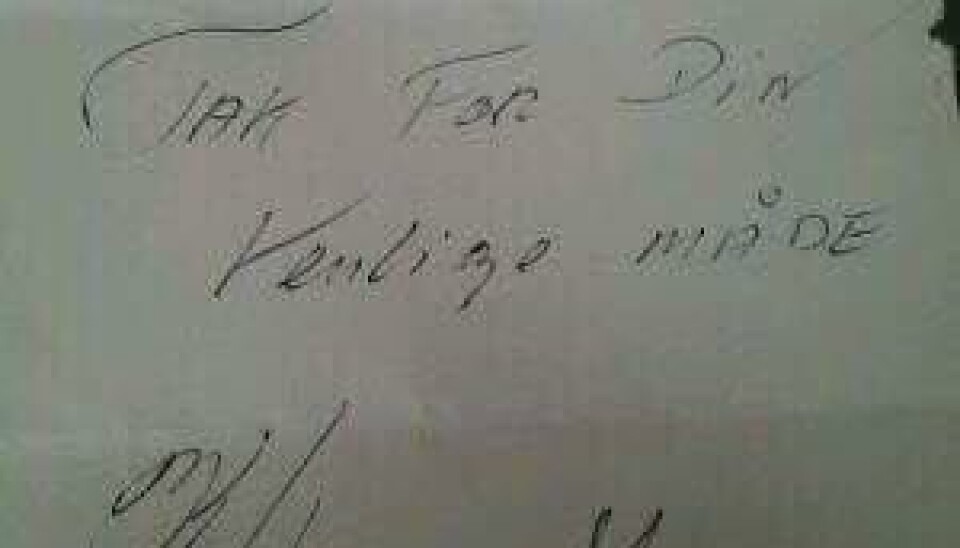 TAK FOR Din
Venlige MÅDE